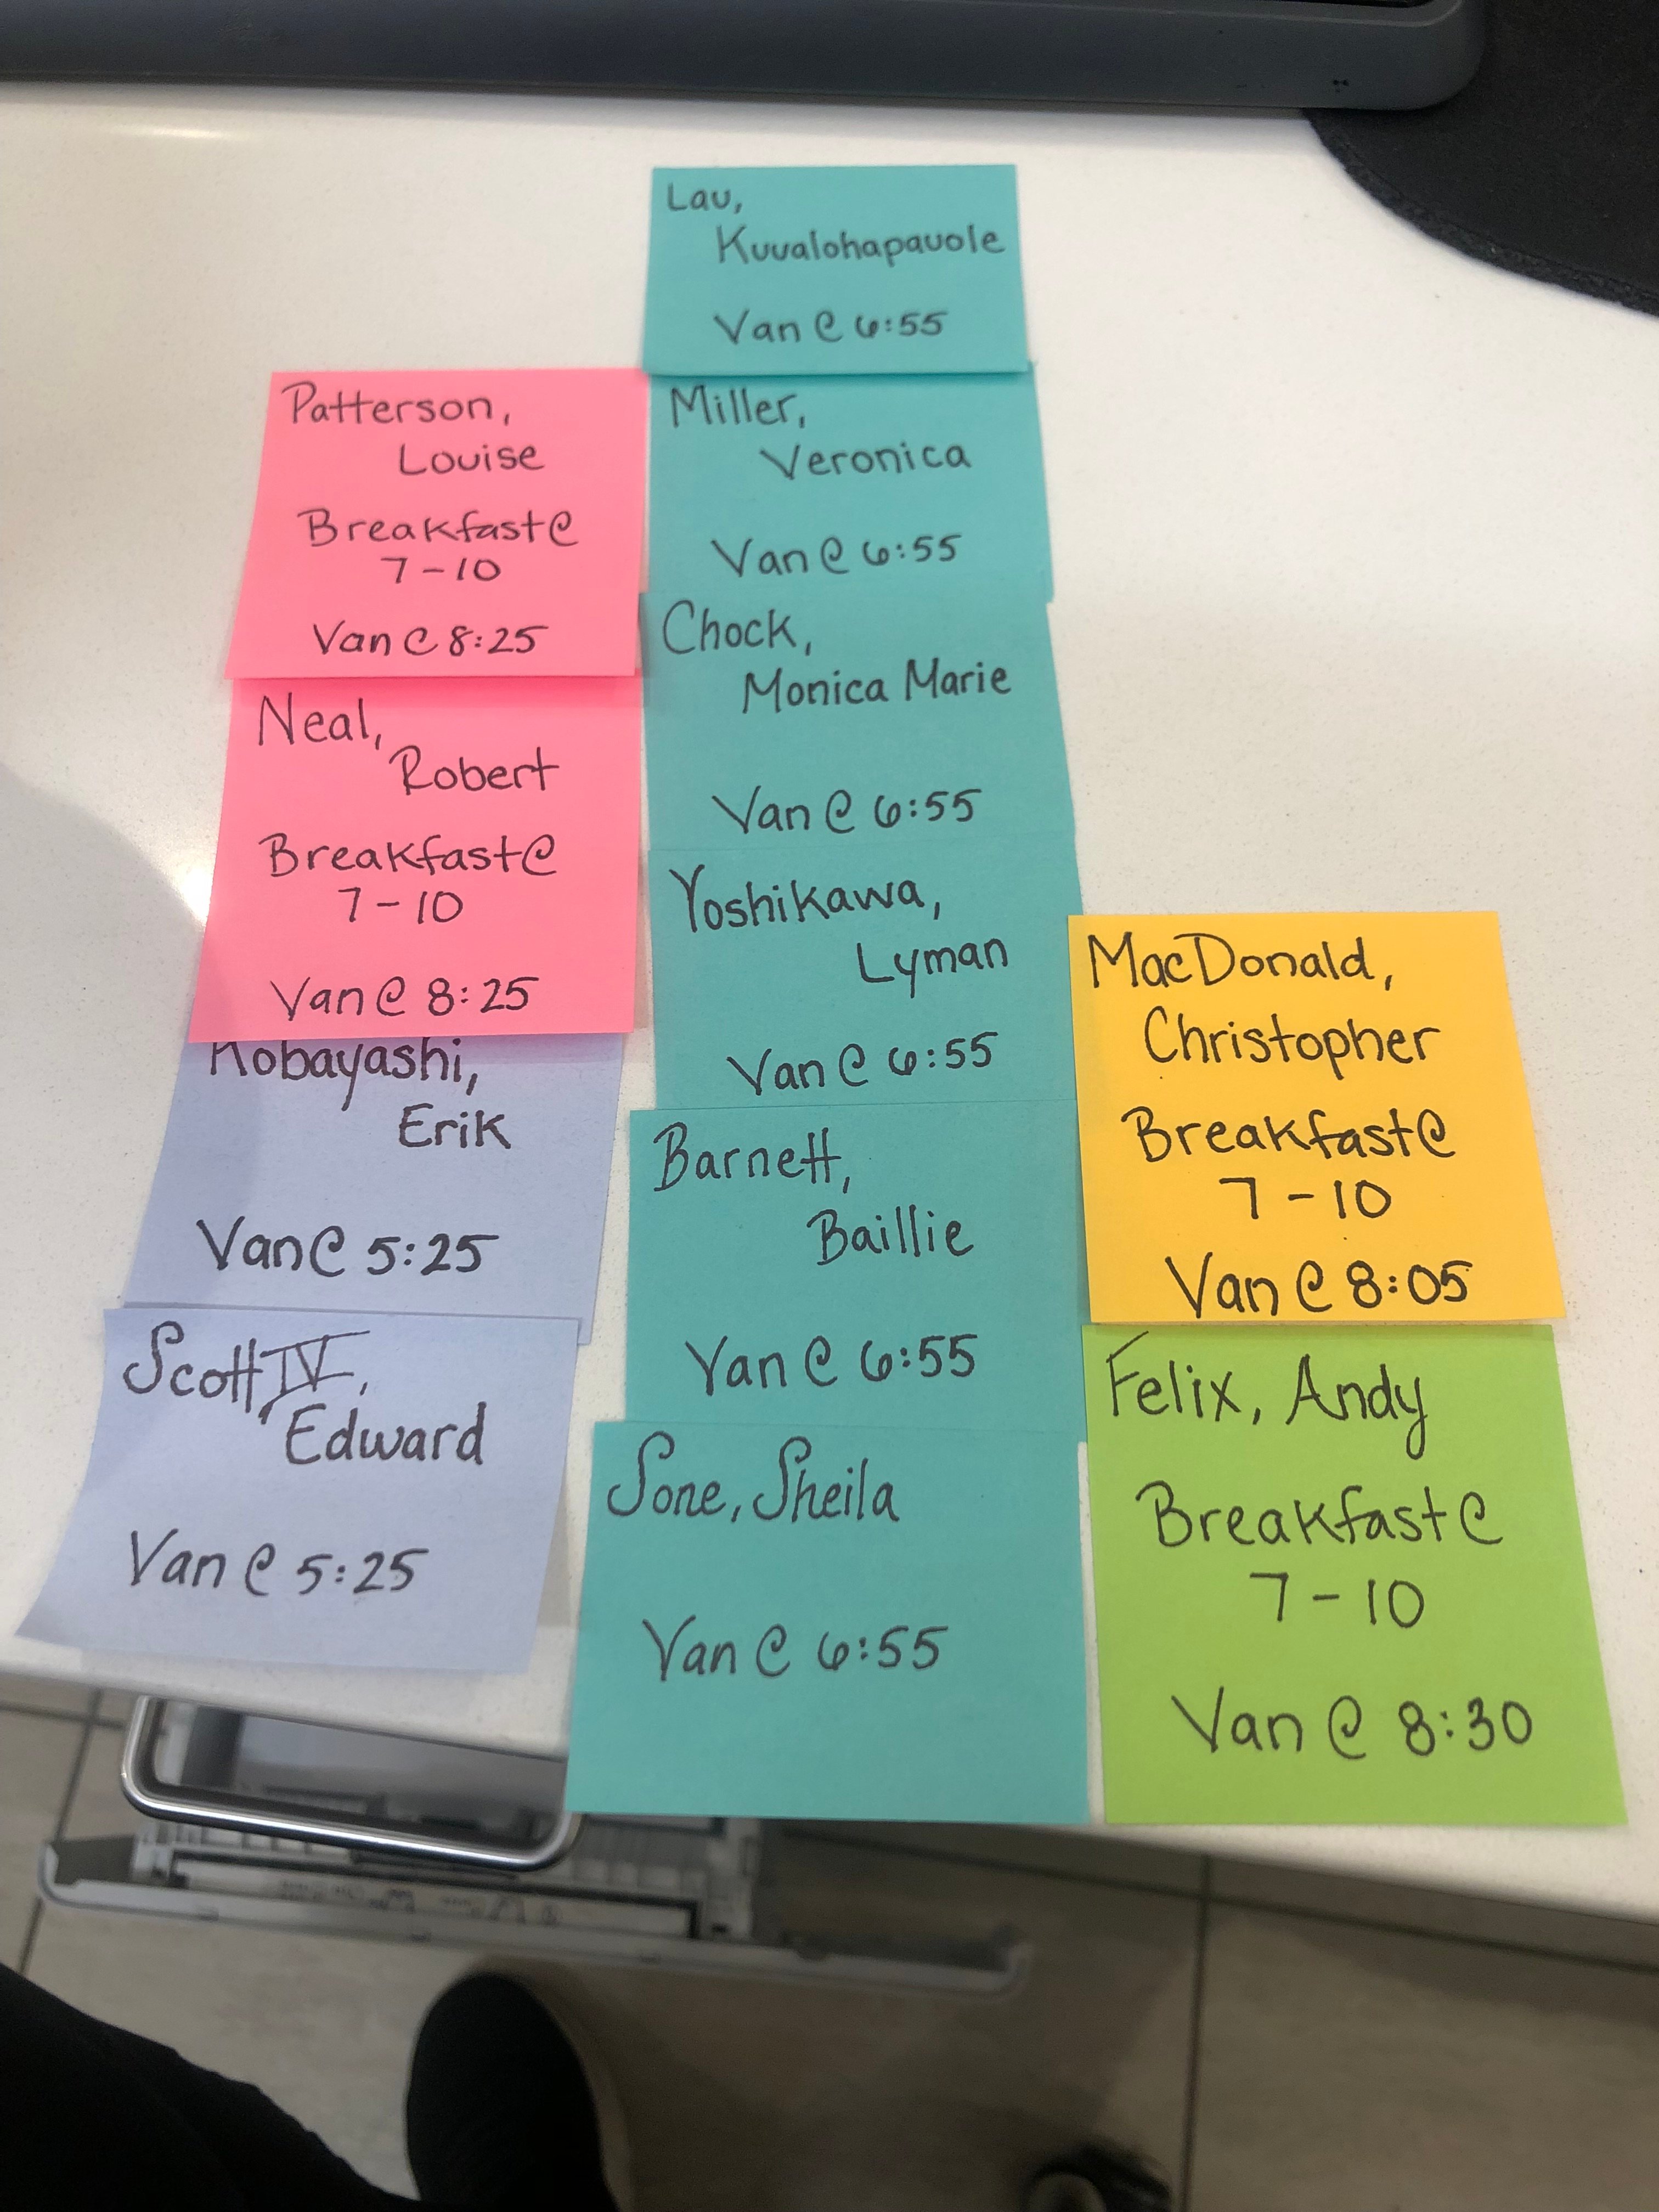 Lau,
Kuualohapauole
Van @ 6:55
Patterson,
Louise
Breakfast@
7-10
Van @ 8:25
Neal,
Robert
Breakfast@
7-10
Van @ 8:25
Kobayashi,
Erik
Van@ 5:25
Scott IV,
Edward
Van @ 5:25
Miller,
Veronica
Van @ 6:55
Chock,
Monica Marie
Van @ 6:55
Yoshikawa,
Lyman
Van @ 6:55
Barnett,
Baillie
Van @ 6:55
Sone, Sheila
Van @ 6:55
MacDonald,
Christopher
Breakfast@
7-10
Van @ 8:05
Felix, Andy
Breakfast@
7-10
Van @ 8:30